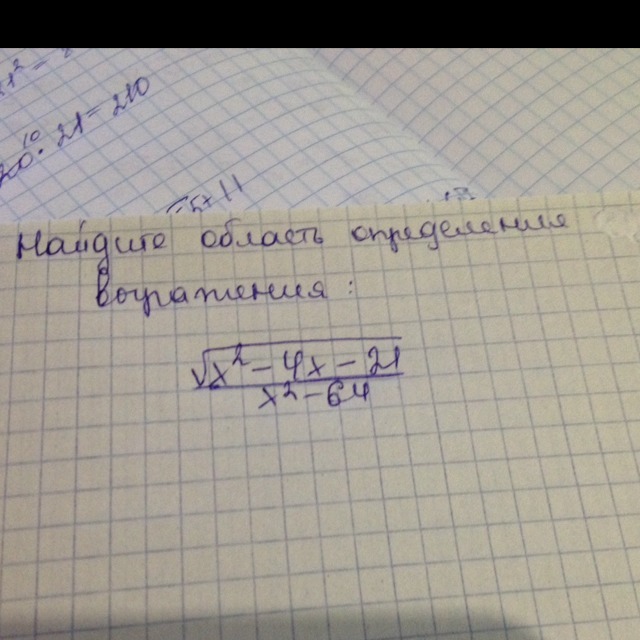 00:21=210
Найдите область определения
выражения:
√x²-4x-21
x²-64